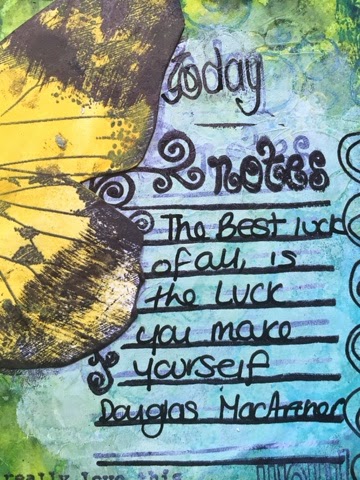 Today
notes
The Best luck
of all, is
the Luck
you make
yourself
Douglas MacArther
really love this